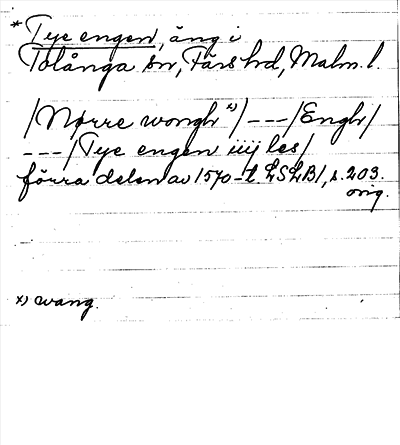 * Tye engen, äng i
Tolånga sn, Färs hd, Malm. l.
/Nørre wongh x)/ --- /Engh/
--- /Tye engen iiij les/
förra delen av 1570-t. LSLB1, s. 203.
orig.
x) wang.